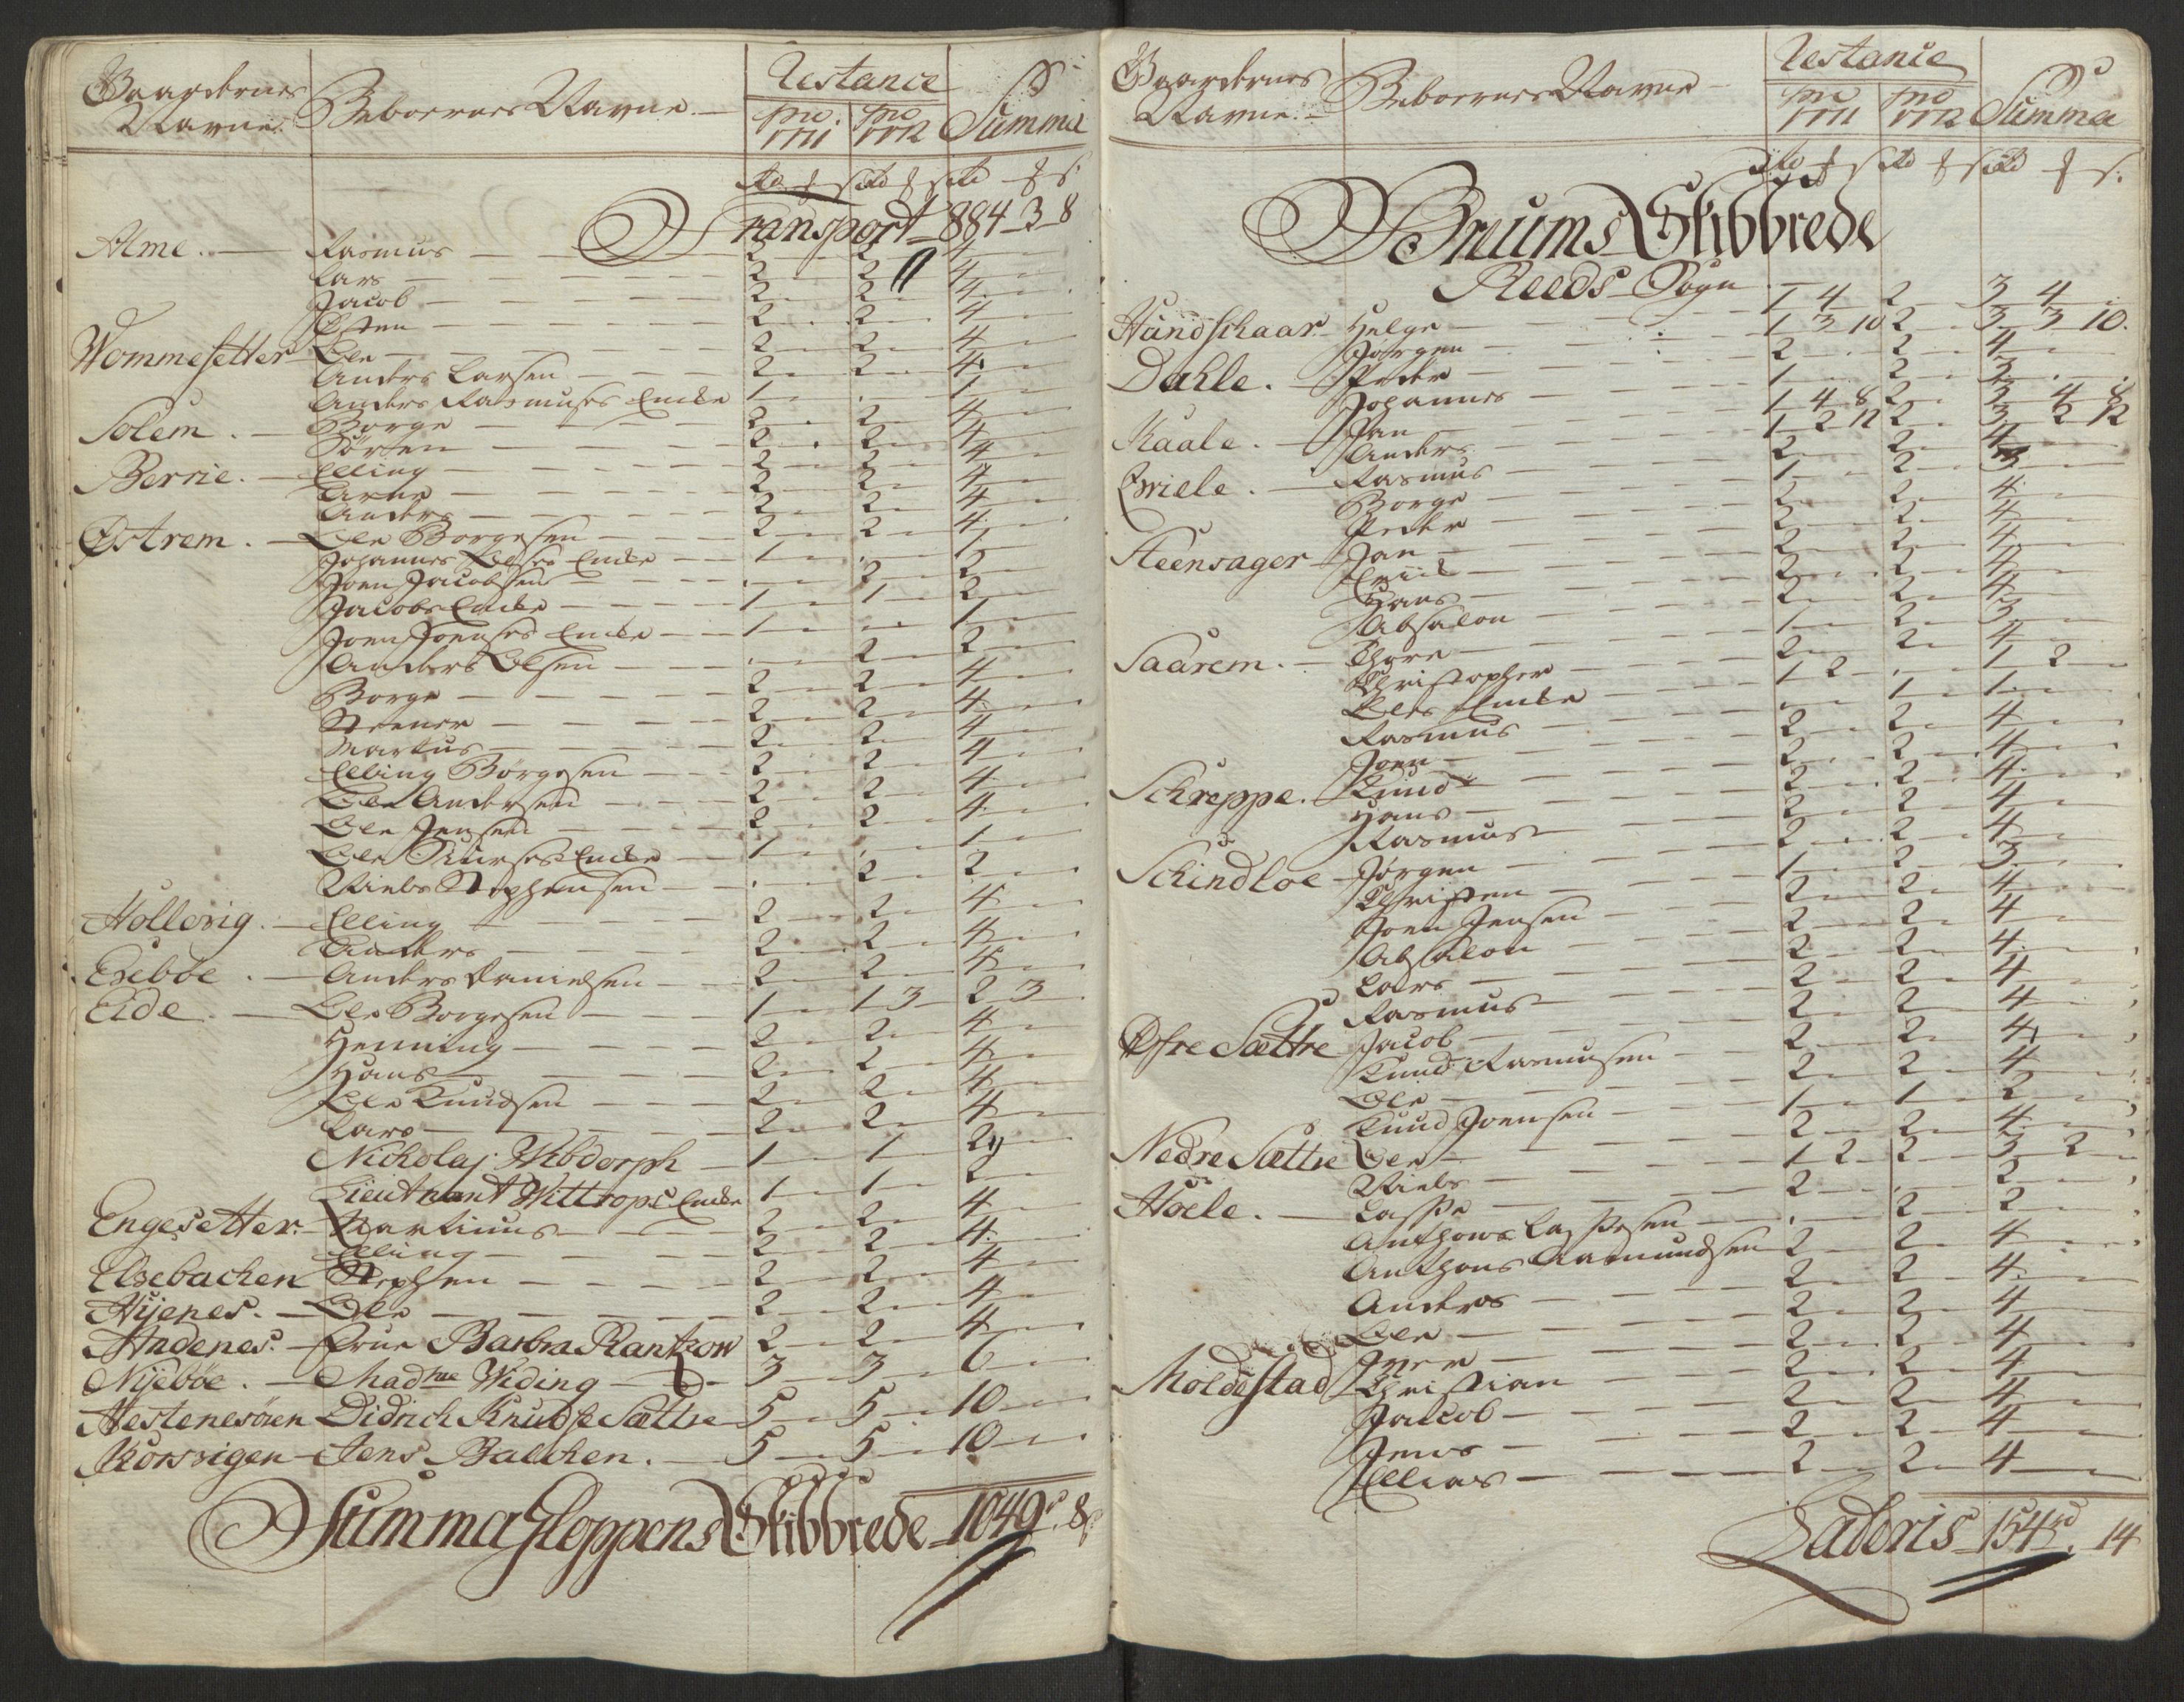 Gaardernes Navne. Beboernes Navne. Restance Summa
pro 1771 pro 1772
rd ß rd ß rd ß
Transport 884 3 8
Alme. Rasmus 2 2 4
Lars 2 2 4
Jacob 2 2 4
Osten 2 2 4
Wommesetter Ole 2 2 4
Anders Larsen 2 2 4
Anders Rasmuses Encke 1 1
Solem. Borge 2 2 4
Sørren 2 2 4
Berrie. Elling 2 2 4
Arne 2 2 4
Anders 2 2 4
Østrem. Ole Borgesen 2 2 4
Johannes Olses Encke 1 1
Joen Jacobsen 2 2
Jacobs Encke 1 1 2
Joen Joenses Encke 1 1
Anders Olsen 2 2
Borge 2 2 4
Steener 2 2 4
Markus 2 2 4
Elling Børgesen 2 2 4
Ole Andersen 2 2 4
Ole Jensen 2 2 4
Ole Encke 1 1
Niels Stephensen 2 2
Hollevig. Elling 2 2 4
Anders 2 2 4
Eseboe. Anders Danielsen 2 2 4
Eide. Ole Borgesen 1 1 3 2 3
Henning 2 2 4
Hans 2 2 4
Ole Knudsen 2 2 4
Lars 2 2 4
Nickolaj Wibdorph 1 1 2
Lieutnant Wittrops Encke 1 1 2
Engesetter. Martinus 2 2 4
Elling 2 2 4
Elsebachen Stephen 2 2 4
Hyenes. Ole 2 2 4
Andenes. Frue Barbra Rantzow 2 2 4
Nyeböe. Madme Widing 3 3 6
Hestenesören Didrich Knudse Sættre 5 5 10
Korsvigen Jens Balchen. 5 5 10
Summa Gloppens Skibbrede 1049 rd. 8 s
Gaardernes Navne. Beboernes Navne Restance Summa
pro 1771 pro 1772
rd ß rd ß rd ß
Breums Skibbrede
Reeds Sogn
Hundschaar Helge 1 4 2 3 4
Jørgen 1 3 10 2 3 3 10.
Dahle. Peder 2 2 4
Johannes 1 2 3
Kaale. Jan 1 4 8 2 3 4 8
Anders 1 2 12 2 3 2 12
Qviele. Rasmus 2 2 4
Borge 1 2 3
Peder 2 2 4
Steensager Jan 2 2 4
Eriik 2 2 4
Hans 2 2 4
Absalon 2 2 4
Saarem. Thore 1 2 3
Christopher 2 2 4
Oles Encke 1 2 1 2
Rasmus 1 1
Joen 2 2 4
Schreppe. Knud 2 2 4
Hans 2 2 4
Rasmus 2 2 4
Schindloe Jørgen 2 2 4
Christen 1 2 3
Joen Jensen 2 2 4
Absalon 2 2 4
Lars 2 2 4
Rasmus 2 2 4
Øfre Sættre Jacob 2 2 4
Knud Rasmusen 2 2 4
Ole 2 2 4
Knud Joensen 1 1 2
Nedre Sættre Ole 2 2 4
Niels 1 2 2 3 2
Hoele. Lasse 2 2
Anthons Lassesen 2 2
Anthons Aamundsen 2 2 4
Anders 2 2 4
Ole 2 2 4
Moldestad Iver 2 2 4
Christian 2 2 4
Jacob 2 2 4
Jens 2 2 4
Ellias 2 2 4
Lateris 154 rd. 14